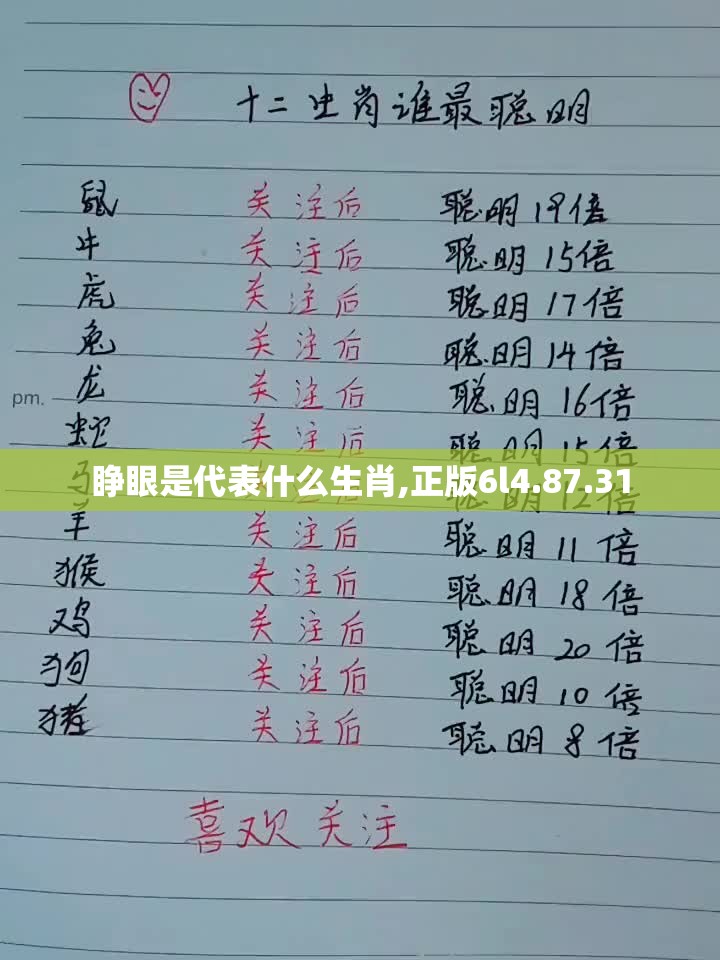 十二生肖谁最聪明
鼠 关注后 聪明19倍
牛 关注后 聪明15倍
虎 关注后 聪明17倍
兔 关注后 聪明14倍
pm.
龙 关注后 聪明16倍
蛇 关注后 聪明15倍
马 12倍
睁眼是代表什么生肖,正版6l4.87.31
羊 关注后 聪明11倍
猴 关注后 聪明18倍
鸡 关注后 聪明20倍
狗 关注后 聪明10倍
猪 关注后 聪明8倍
喜欢关注